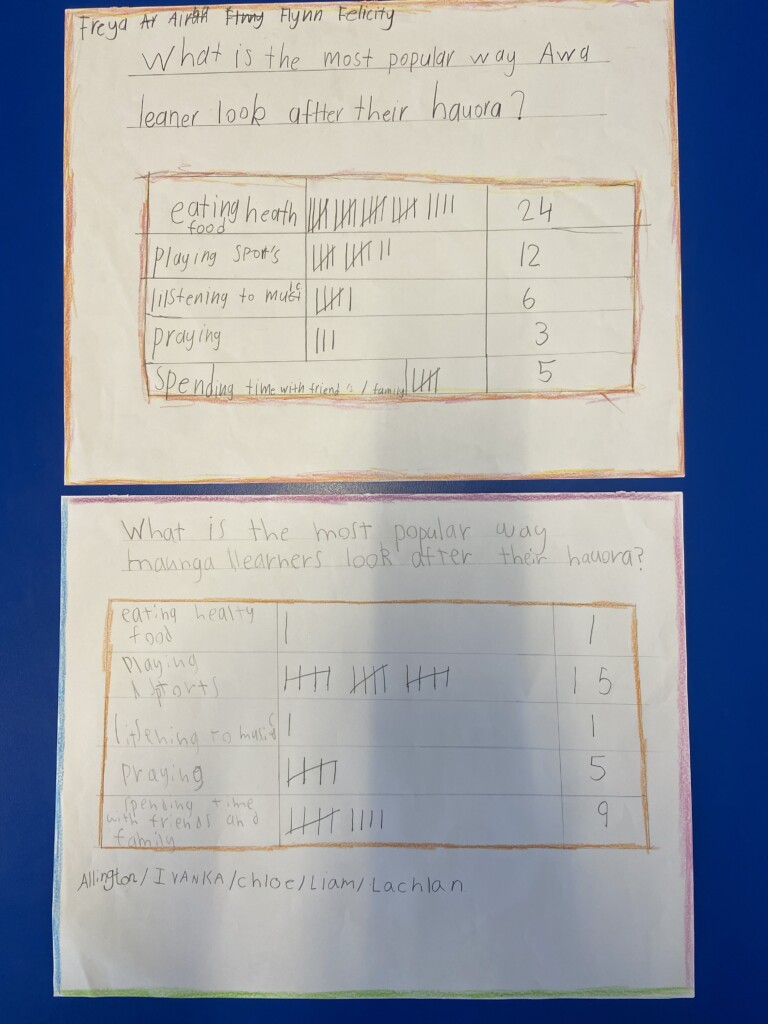 Freya Flynn Felicity
What is the most popular way Awa
leaner look aftter their hauora?
eating heath
food
24
playing sports
12
lilstening to music
6
praying
3
Spending time with friend's / family
5
What is the most popular way
maunga llearners look after their hauora?
eating healty
food
1
Playing
sports
15
listening to music
1
praying
5
spending time
with friends and
family
9
Allington/IVANKA/chloe/Liam/Lachlan